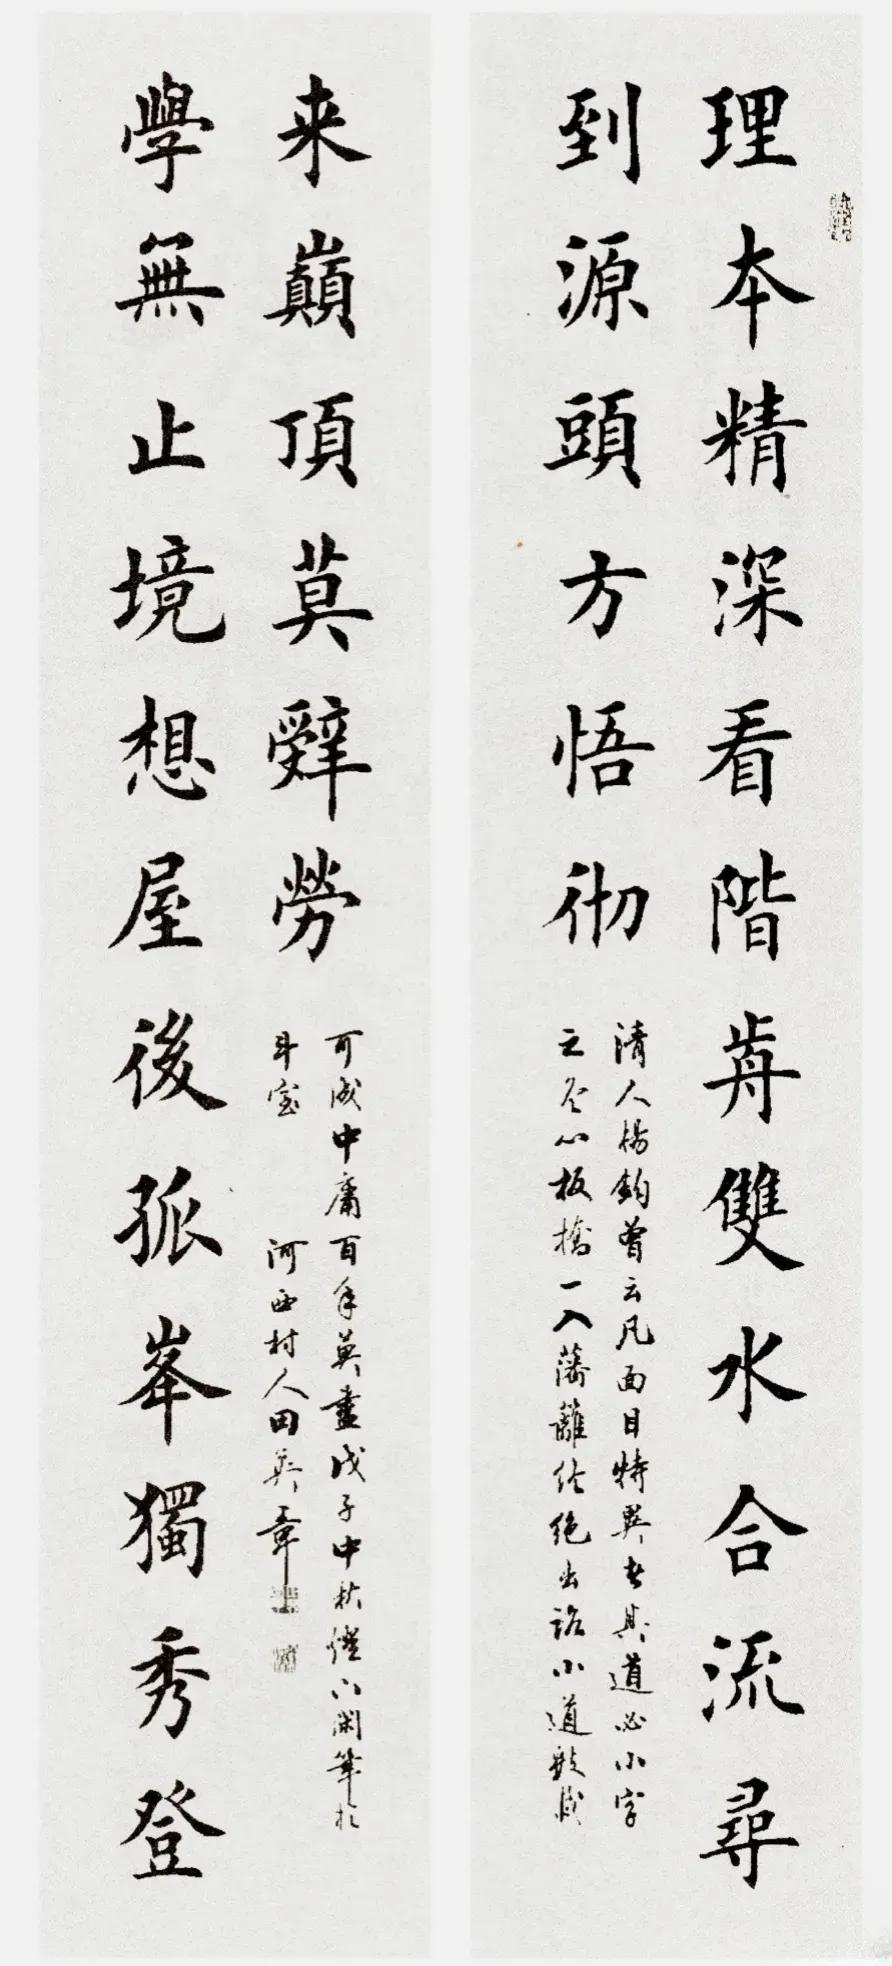 理本精深看階歬雙水合流尋
到源頭方悟彻
清人楊鈞曾云凡面目特異者其道必小字
之冬心板橋一入藩籬终绝出路小道
學無止境想屋後孤峯獨秀登
来巔頂莫辤勞
可成中庸百年莫盡戊子中秋燈下闲筆於
斗室 河西村人田英章